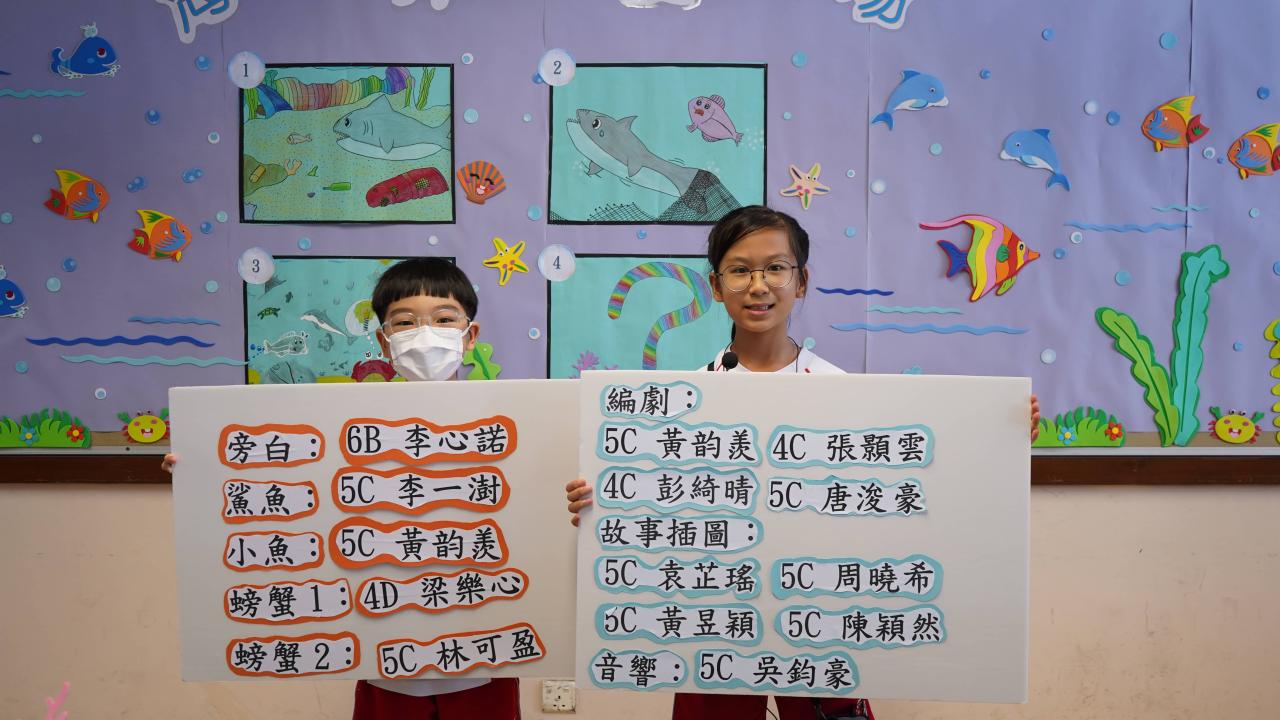 1
2
3
4
旁白：6B 李心諾
鯊魚：5C 李一澍
小魚：5C 黃韵羨
螃蟹1：4D 梁樂心
螃蟹2：5C 林可盈
編劇：
5C 黃韵羨 4C 張顥雲
4C 彭綺晴 5C 唐浚豪
故事插圖：
5C 袁芷瑤 5C 周曉希
5C 黃昱穎 5C 陳穎然
音響：5C 吳鈞豪